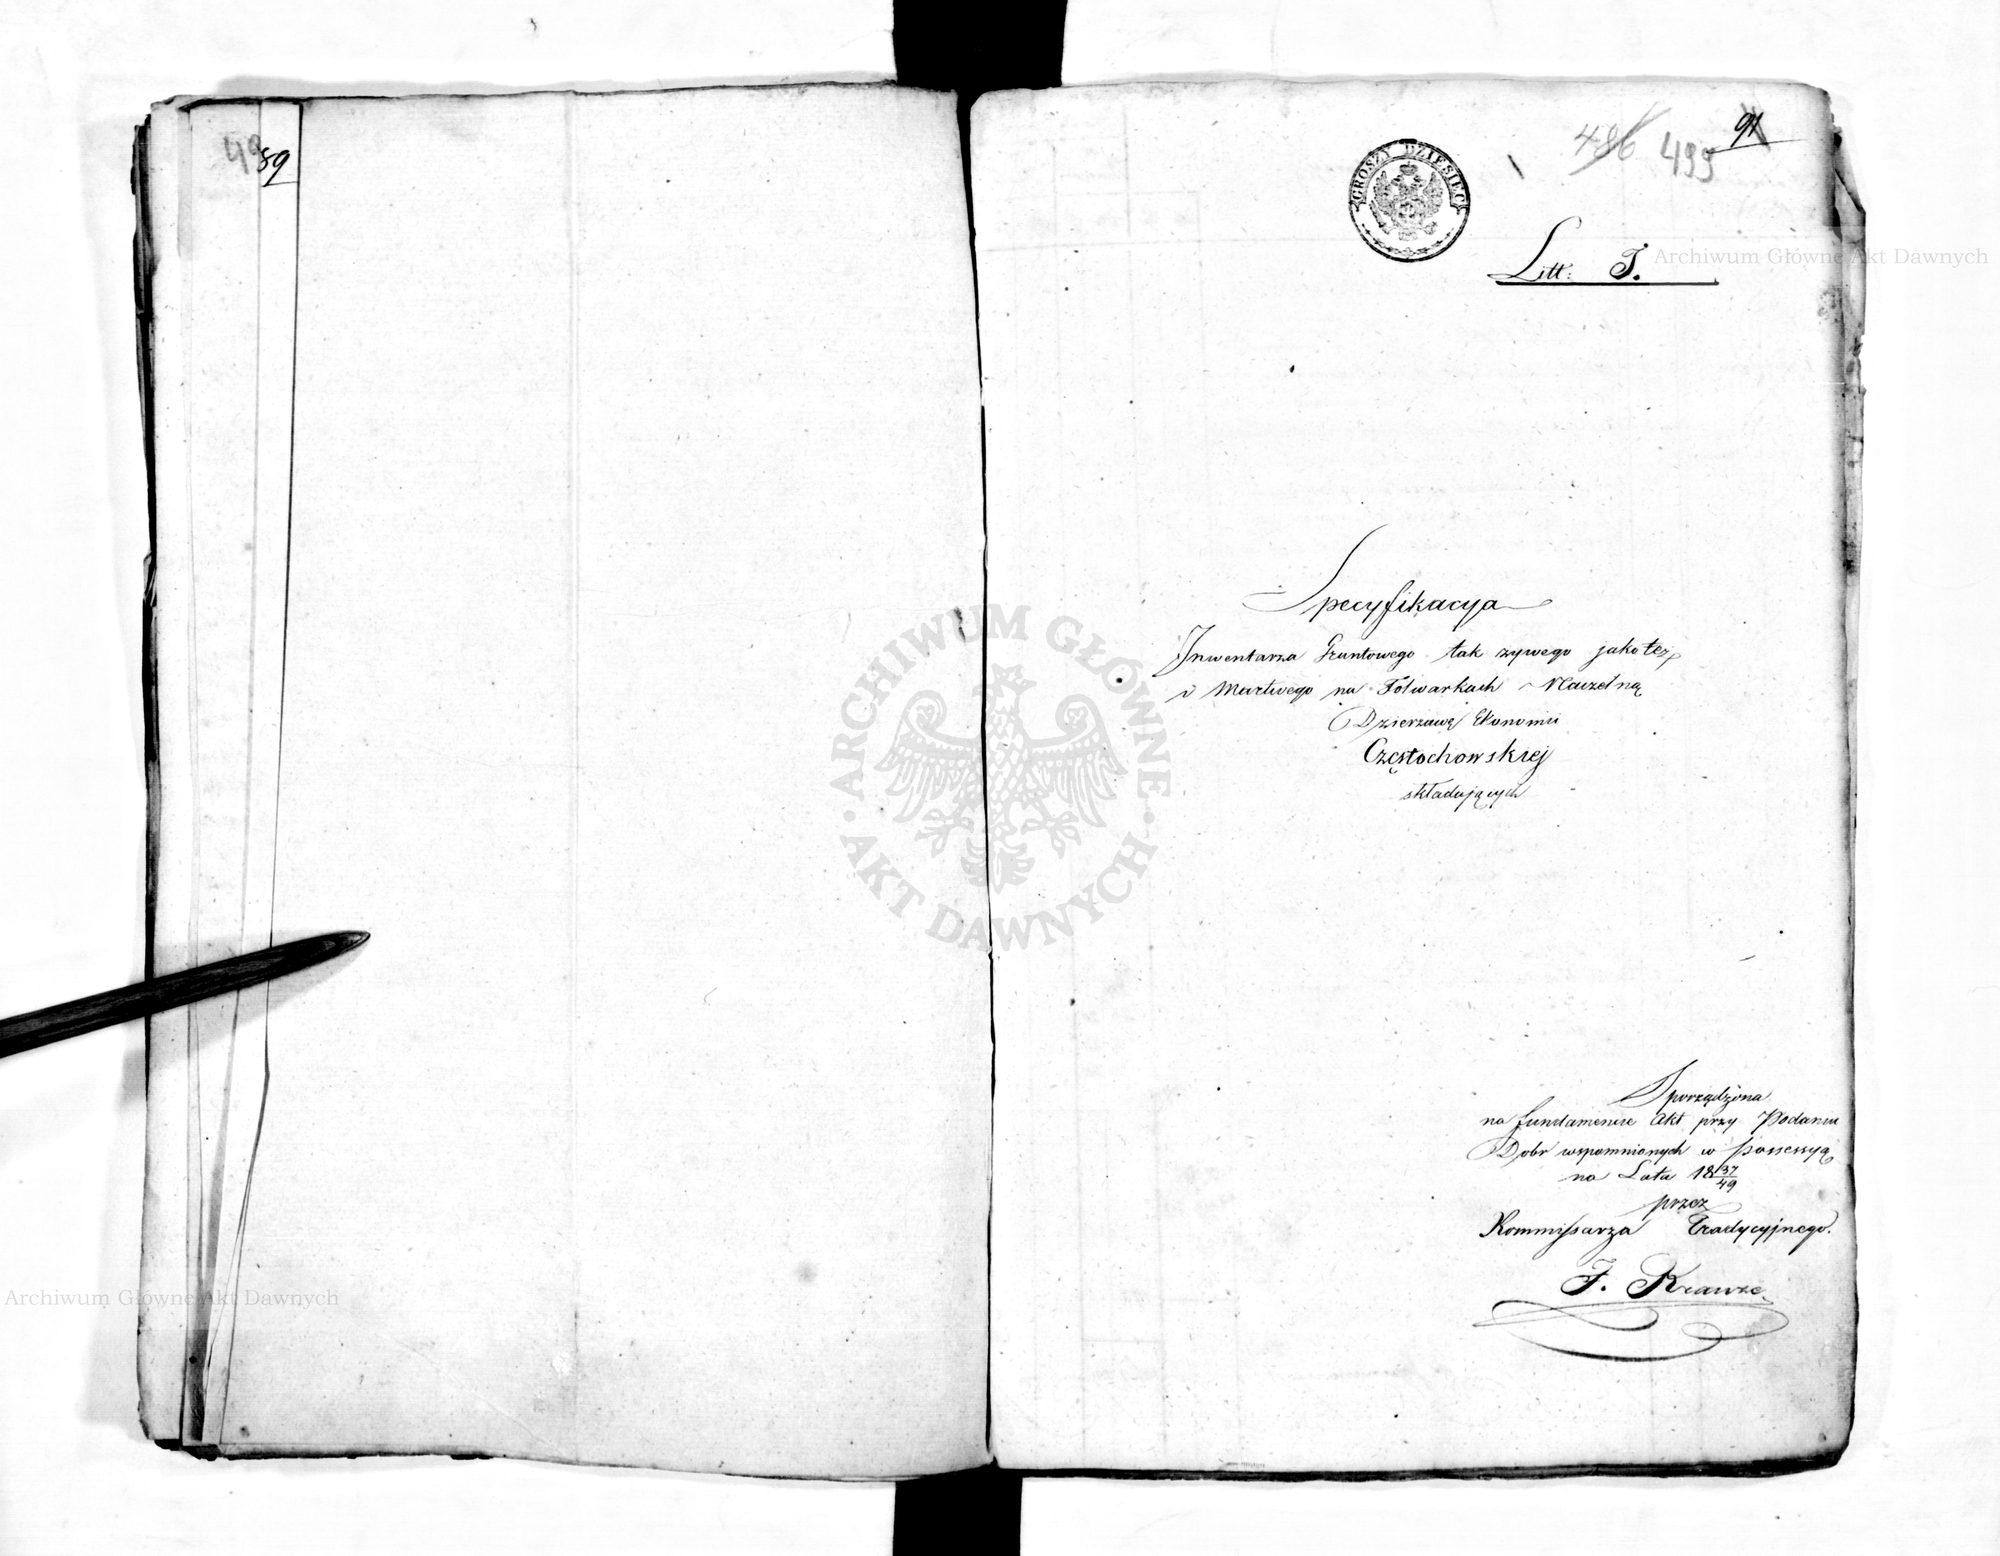 89
486
499
91
GROSZY DZIESIĘĆ
Litt: J.
Archiwum Główne Akt Dawnych
Specyfikacya
Inwentarza Gruntowego tak żywego jako też
i Martwego na Folwarkach Naczelną
Dzierzawę Ekonomii
Częstochowskiej
składających
ARCHIWUM GŁÓWNE
AKT DAWNYCH
Sporządzona
na fundamencie Akt przy Podaniu
Dobr wspomnionych w Possessyą
na Lata 1837/49
przez
Kommissarza Tradycyjnego.
J. Krauze
Archiwum Główne Akt Dawnych